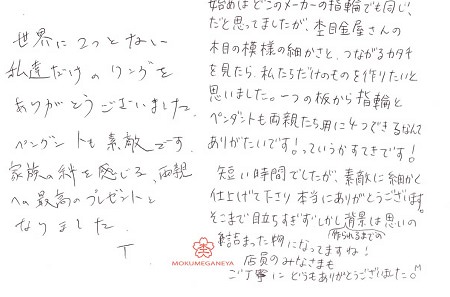 世界に2つとない
私達だけのリングを
ありがとうございました
ペンダントも素敵です
家族の絆を感じる、両親
への最高のプレゼントと
なりました
T
始めはどこのメーカーの指輪でも同じ、
だと思ってましたが、杢目金屋さんの
木目の模様の細かさと、つながるカタチ
を見たら、私たちだけのものを作りたいと
思いました。一つの板から指輪と
ペンダントも両親たち用に4つできるなんて
ありがたいです!っていうかすてきです!
短い時間でしたが、素敵に細かく
仕上げて下さり本当にありがとうございます。
そこまで目立ちすぎずしかし背景は思いの
(作られるまでの)
詰まった物になってますね!
店員のみなさまも
ご丁寧にどうもありがとうございました。M
MOKUMEGANEYA